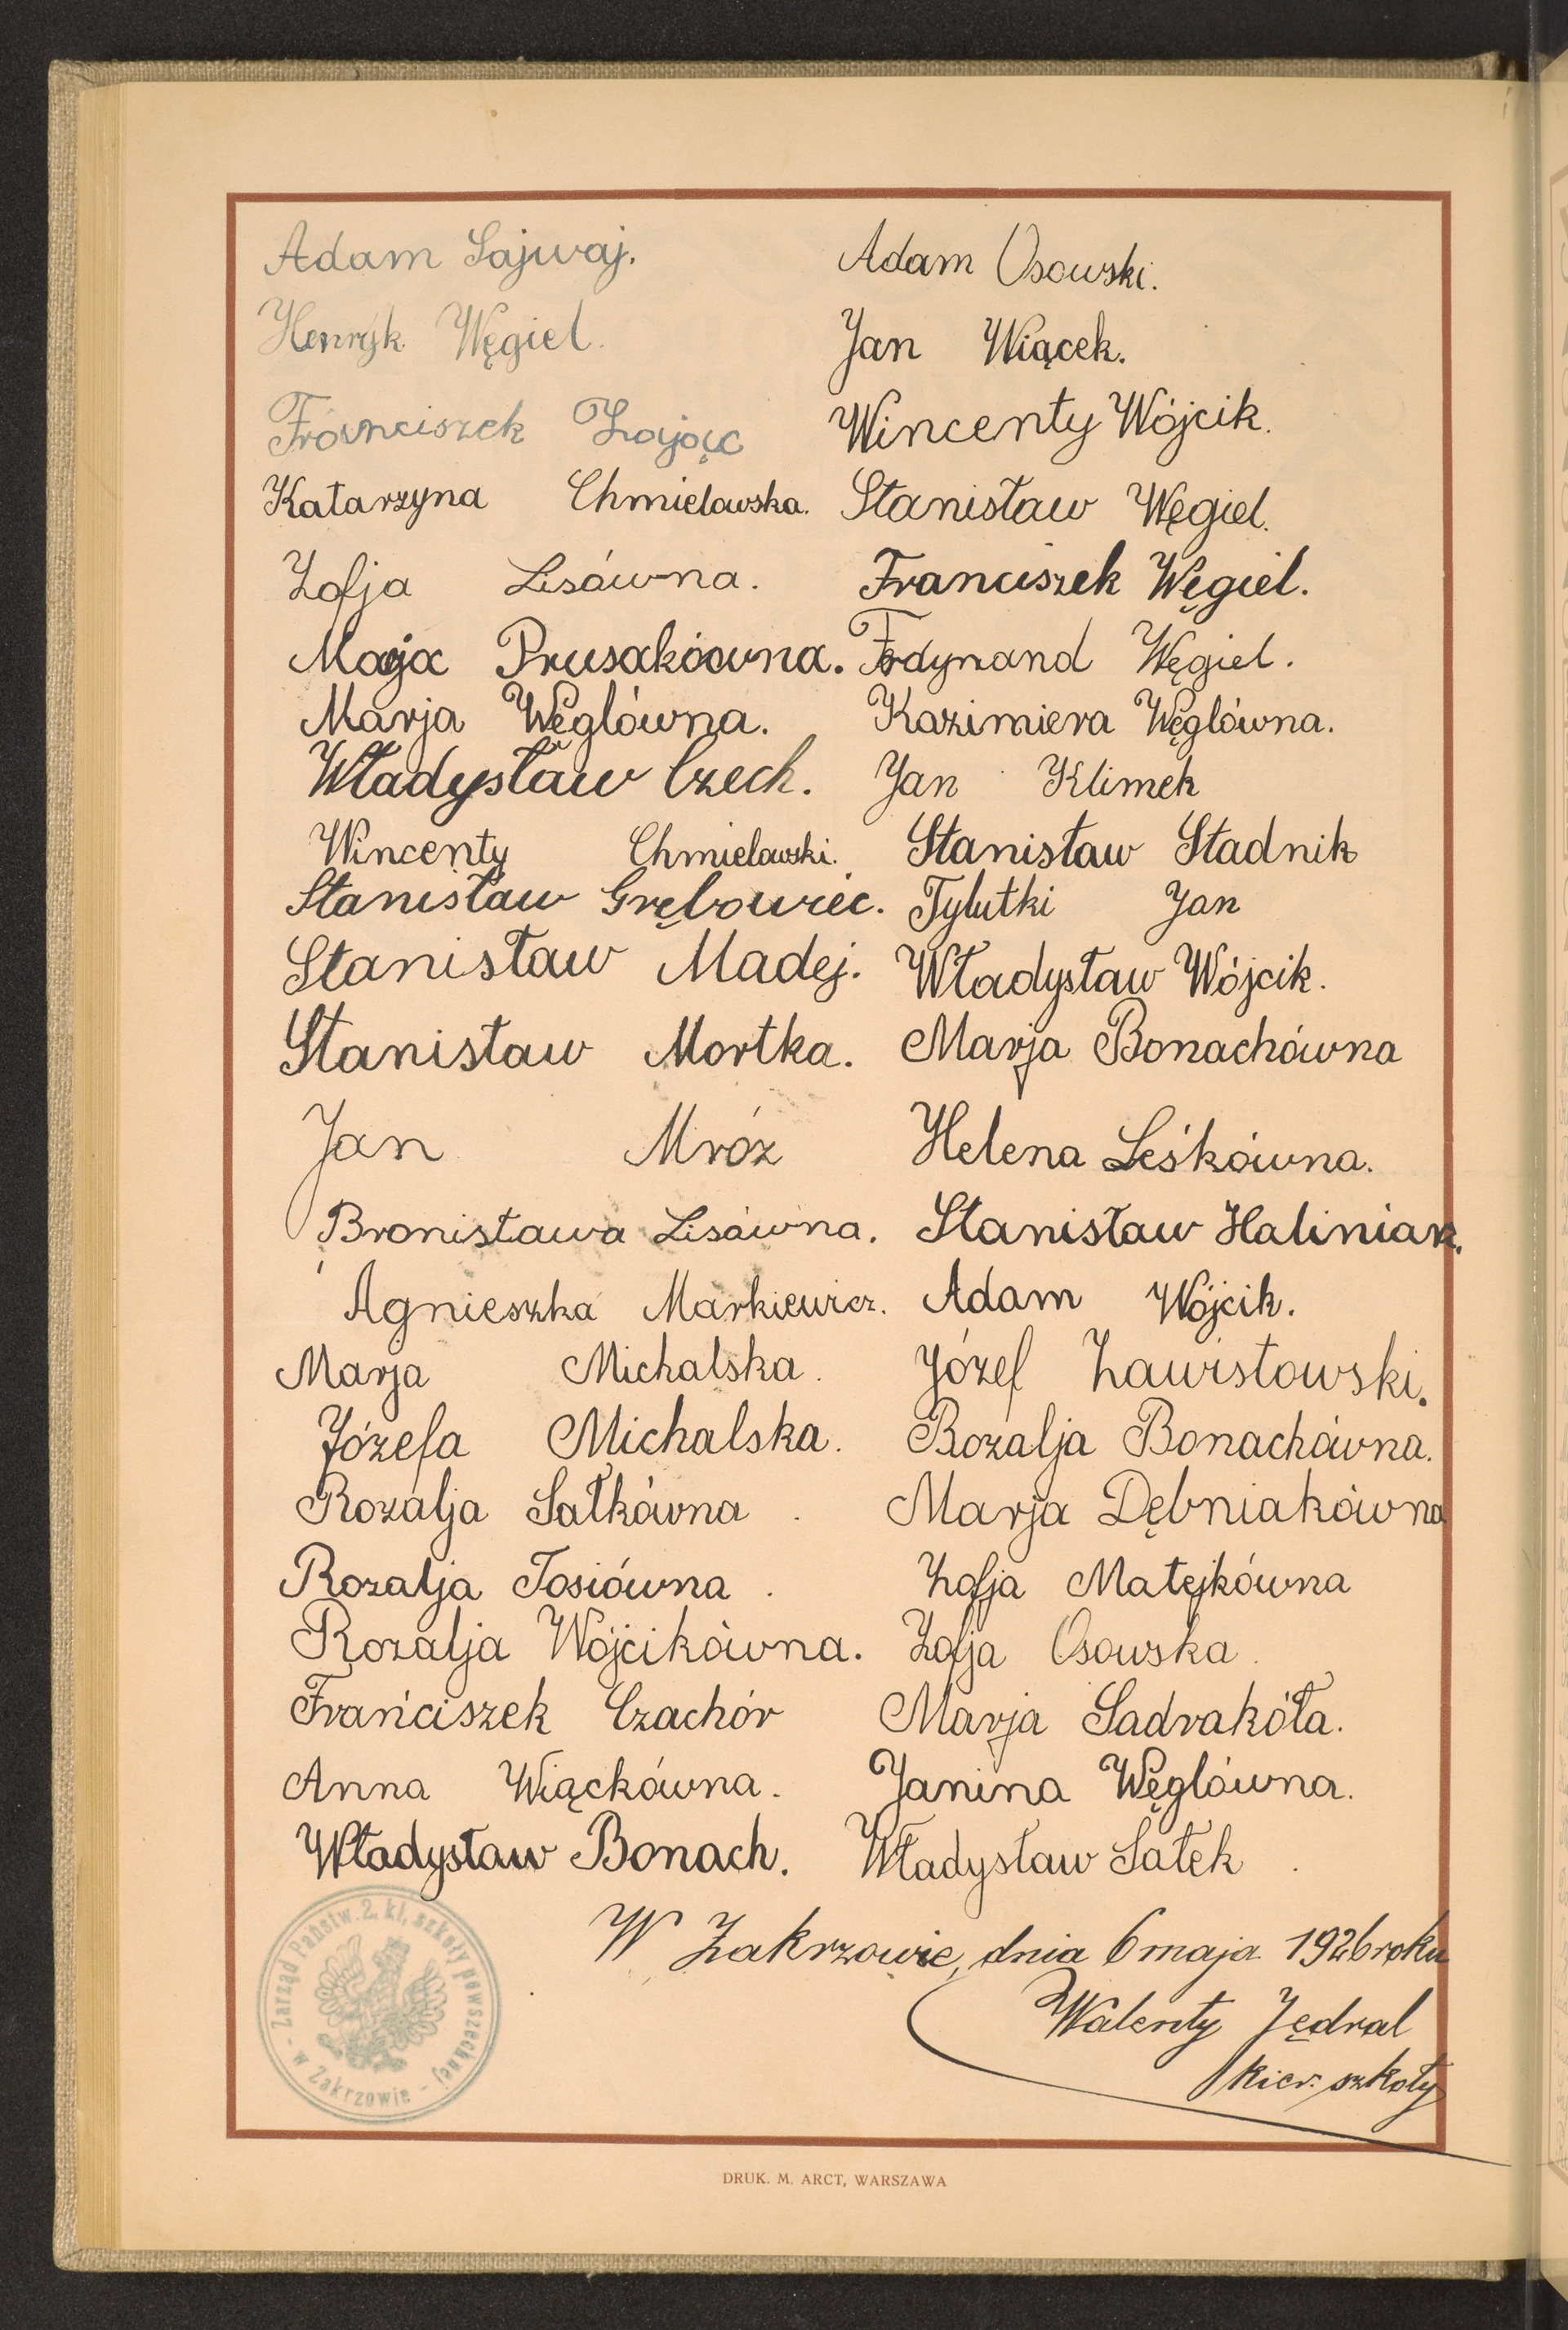 Adam Sajwaj.
Henryk Węgiel.
Franciszek Zając
Katarzyna Chmielowska.
Zofja Lisówna.
Maaja Prusakówna.
Marja Węglówna.
Władysław Czech.
Wincenty Chmielowski.
Stanisław Grębowiec.
Stanisław Madej.
Stanisław Mortka.
Jan Mróz
Bronisława Lisówna.
Agnieszka Markiewicz.
Marja Michalska.
Józefa Michalska.
Rozalja Sałkówna.
Rozalja Tosiówna.
Rozalja Wójcikówna.
Franciszek Czachór
Anna Wiąckówna.
Władysław Bonach.
Adam Osowski.
Jan Wiącek.
Wincenty Wójcik.
Stanisław Węgiel.
Franciszek Węgiel.
Ferdynand Węgiel.
Kazimiera Węglówna.
Jan Klimek
Stanisław Stadnik
Tylutki Jan
Władysław Wójcik.
Marja Bonachówna
Helena Leśkówna.
Stanisław Haliniak.
Adam Wójcik.
Józef Zawistowski.
Rozalja Bonachówna.
Marja Dębniakówna
Zofja Matejkówna
Zofja Osowska.
Marja Sadrakóła.
Janina Węglówna.
Władysław Sałek.
W Zakrzowie, dnia 6 maja 1926 roku
Walenty Jędral
kier. szkoły
- Zarząd Państw. 2. kl. szkoły powszechnej -
w Zakrzowie
DRUK. M. ARCT, WARSZAWA